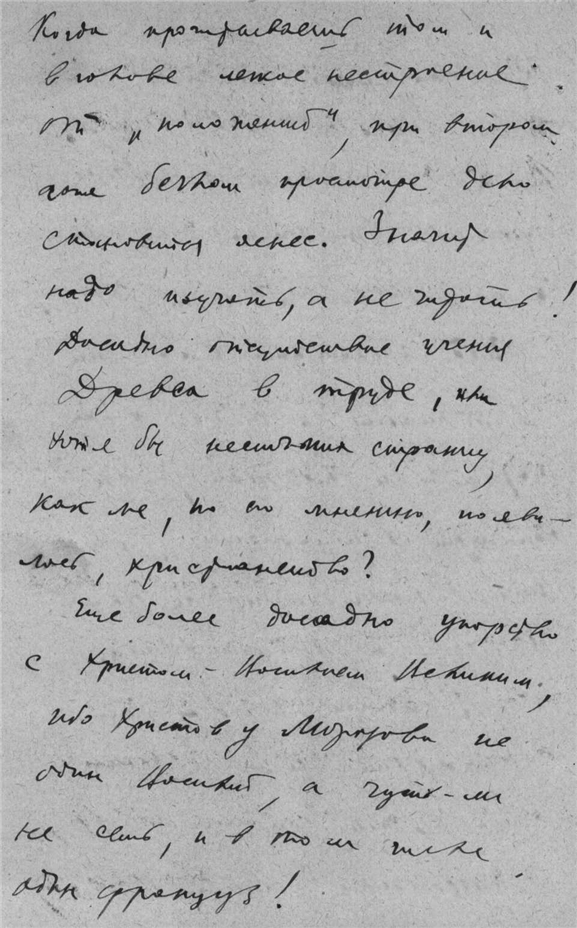 Когда прочитываешь том и
в голове легкое нестроение
от „положений“, при втором
даже беглом просмотре дело
становится яснее. Значит
надо изучать, а не читать!
Досадно отсутствие учения
Древса в труде, или
хотя бы нескольких страниц,
как же, по его мнению, появи-
лось, христианство?
Еще более досадно упорство
с Христом - Василием Великим,
ибо Христов у Морозова не
один Василий, а чуть-ли
не семь, и в том числе
один француз!